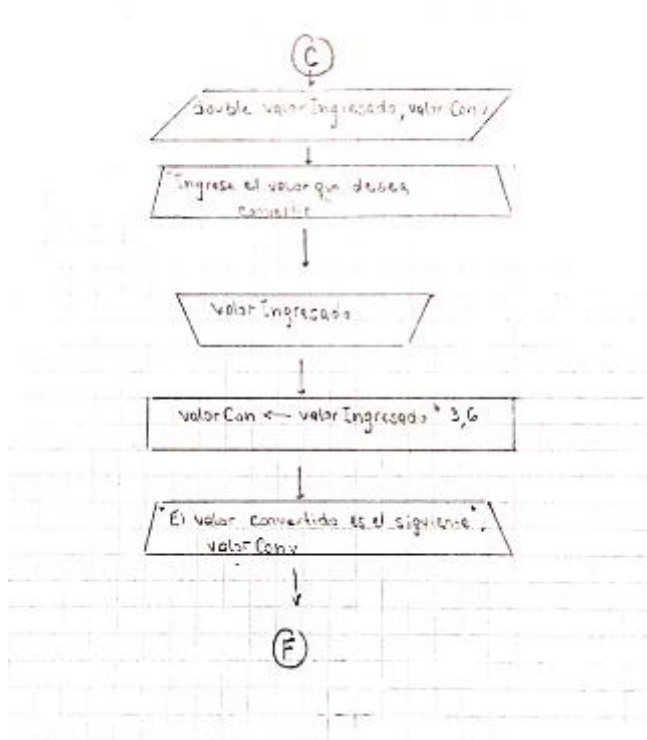 C
double valorIngresado, valorConv
"Ingrese el valor que desea
convertir
valorIngresado
valorCon ← valorIngresado * 3,6
"El valor convertido es el siguiente",
valorConv
F